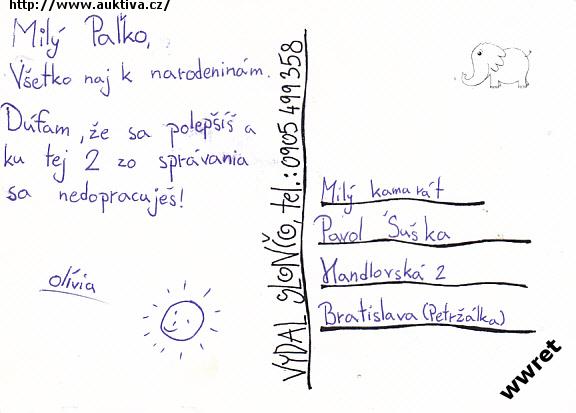 http://www.auktiva.cz/
Milý Paľko,
Všetko naj k narodeninám.
Dúfam, že sa polepšíš a
ku tej 2 zo správania
sa nedopracuješ!
olívia
VYDAL SLONÍČO, tel.: 0905 499 358
Milý kamarát
Pavol Šuška
Handlovská 2
Bratislava (Petržálka)
wwret